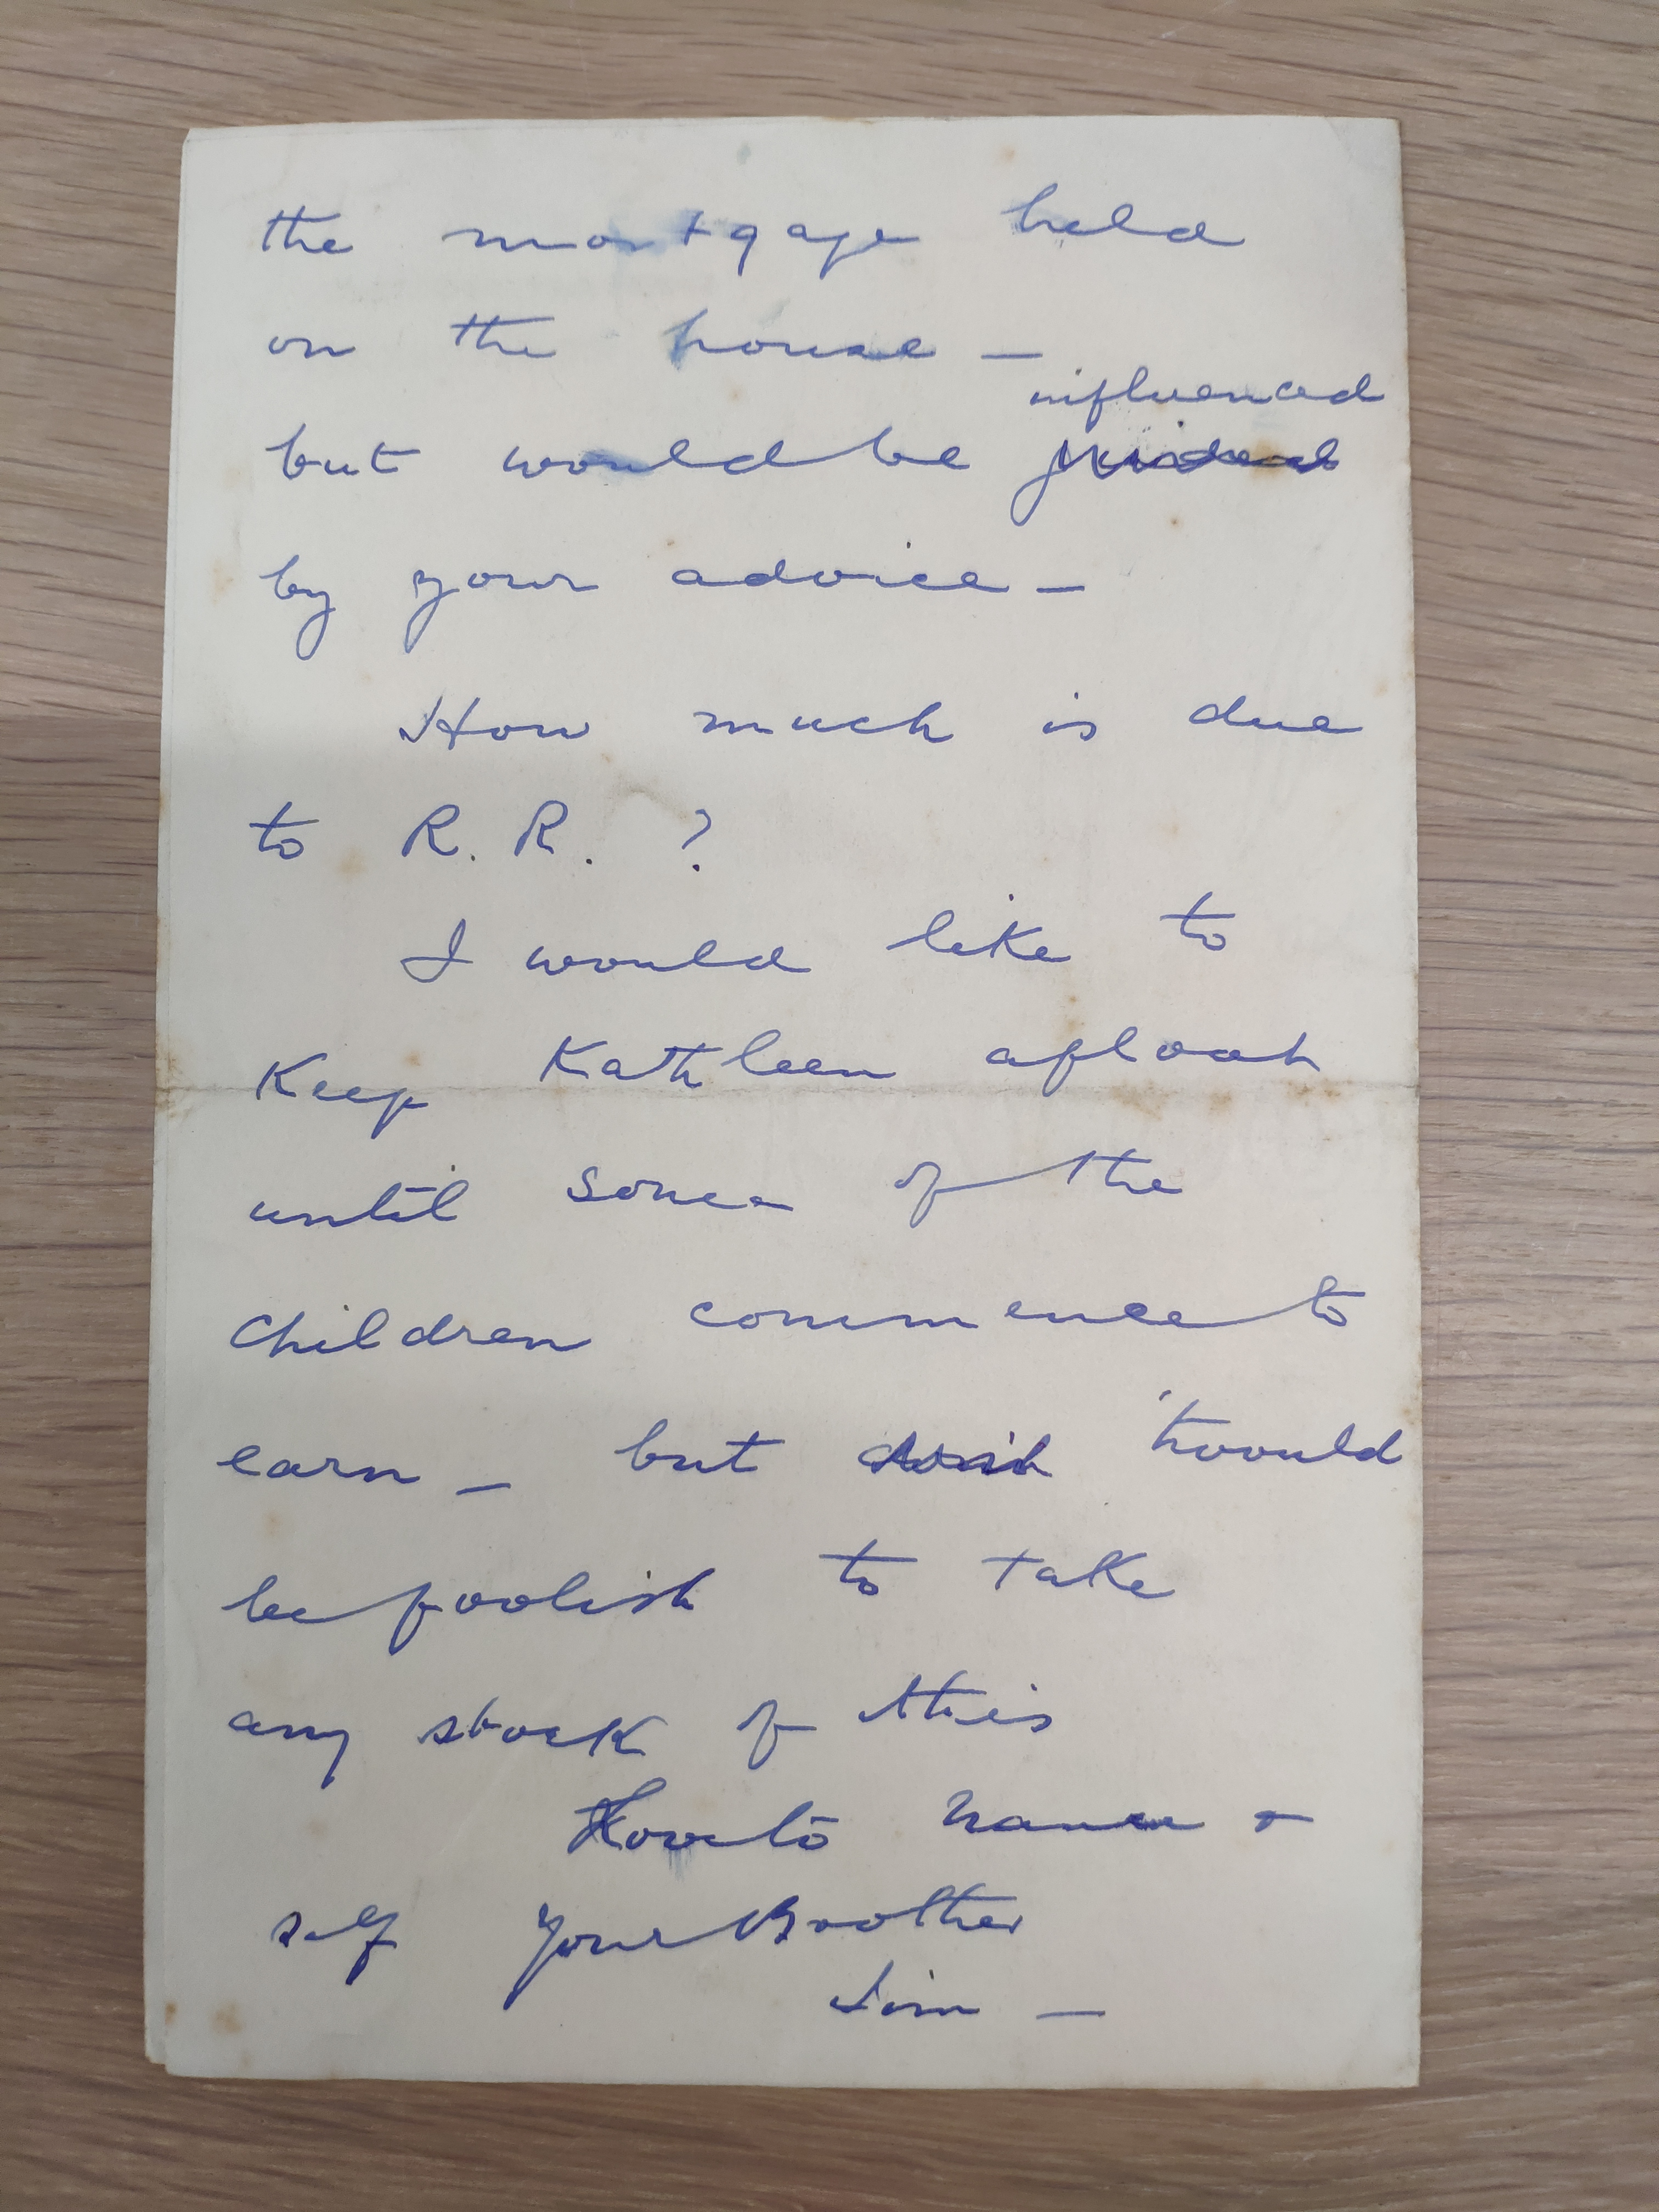 the mortgage held
on the house —
influenced
but would be guided
by your advice —
How much is due
to R. R. ?
I would like to
Keep Kathleen afloat
until some of the
Children commence to
earn — but 'twould
be foolish to take
any stock of this
Love to +
self Your Brother
Jim —